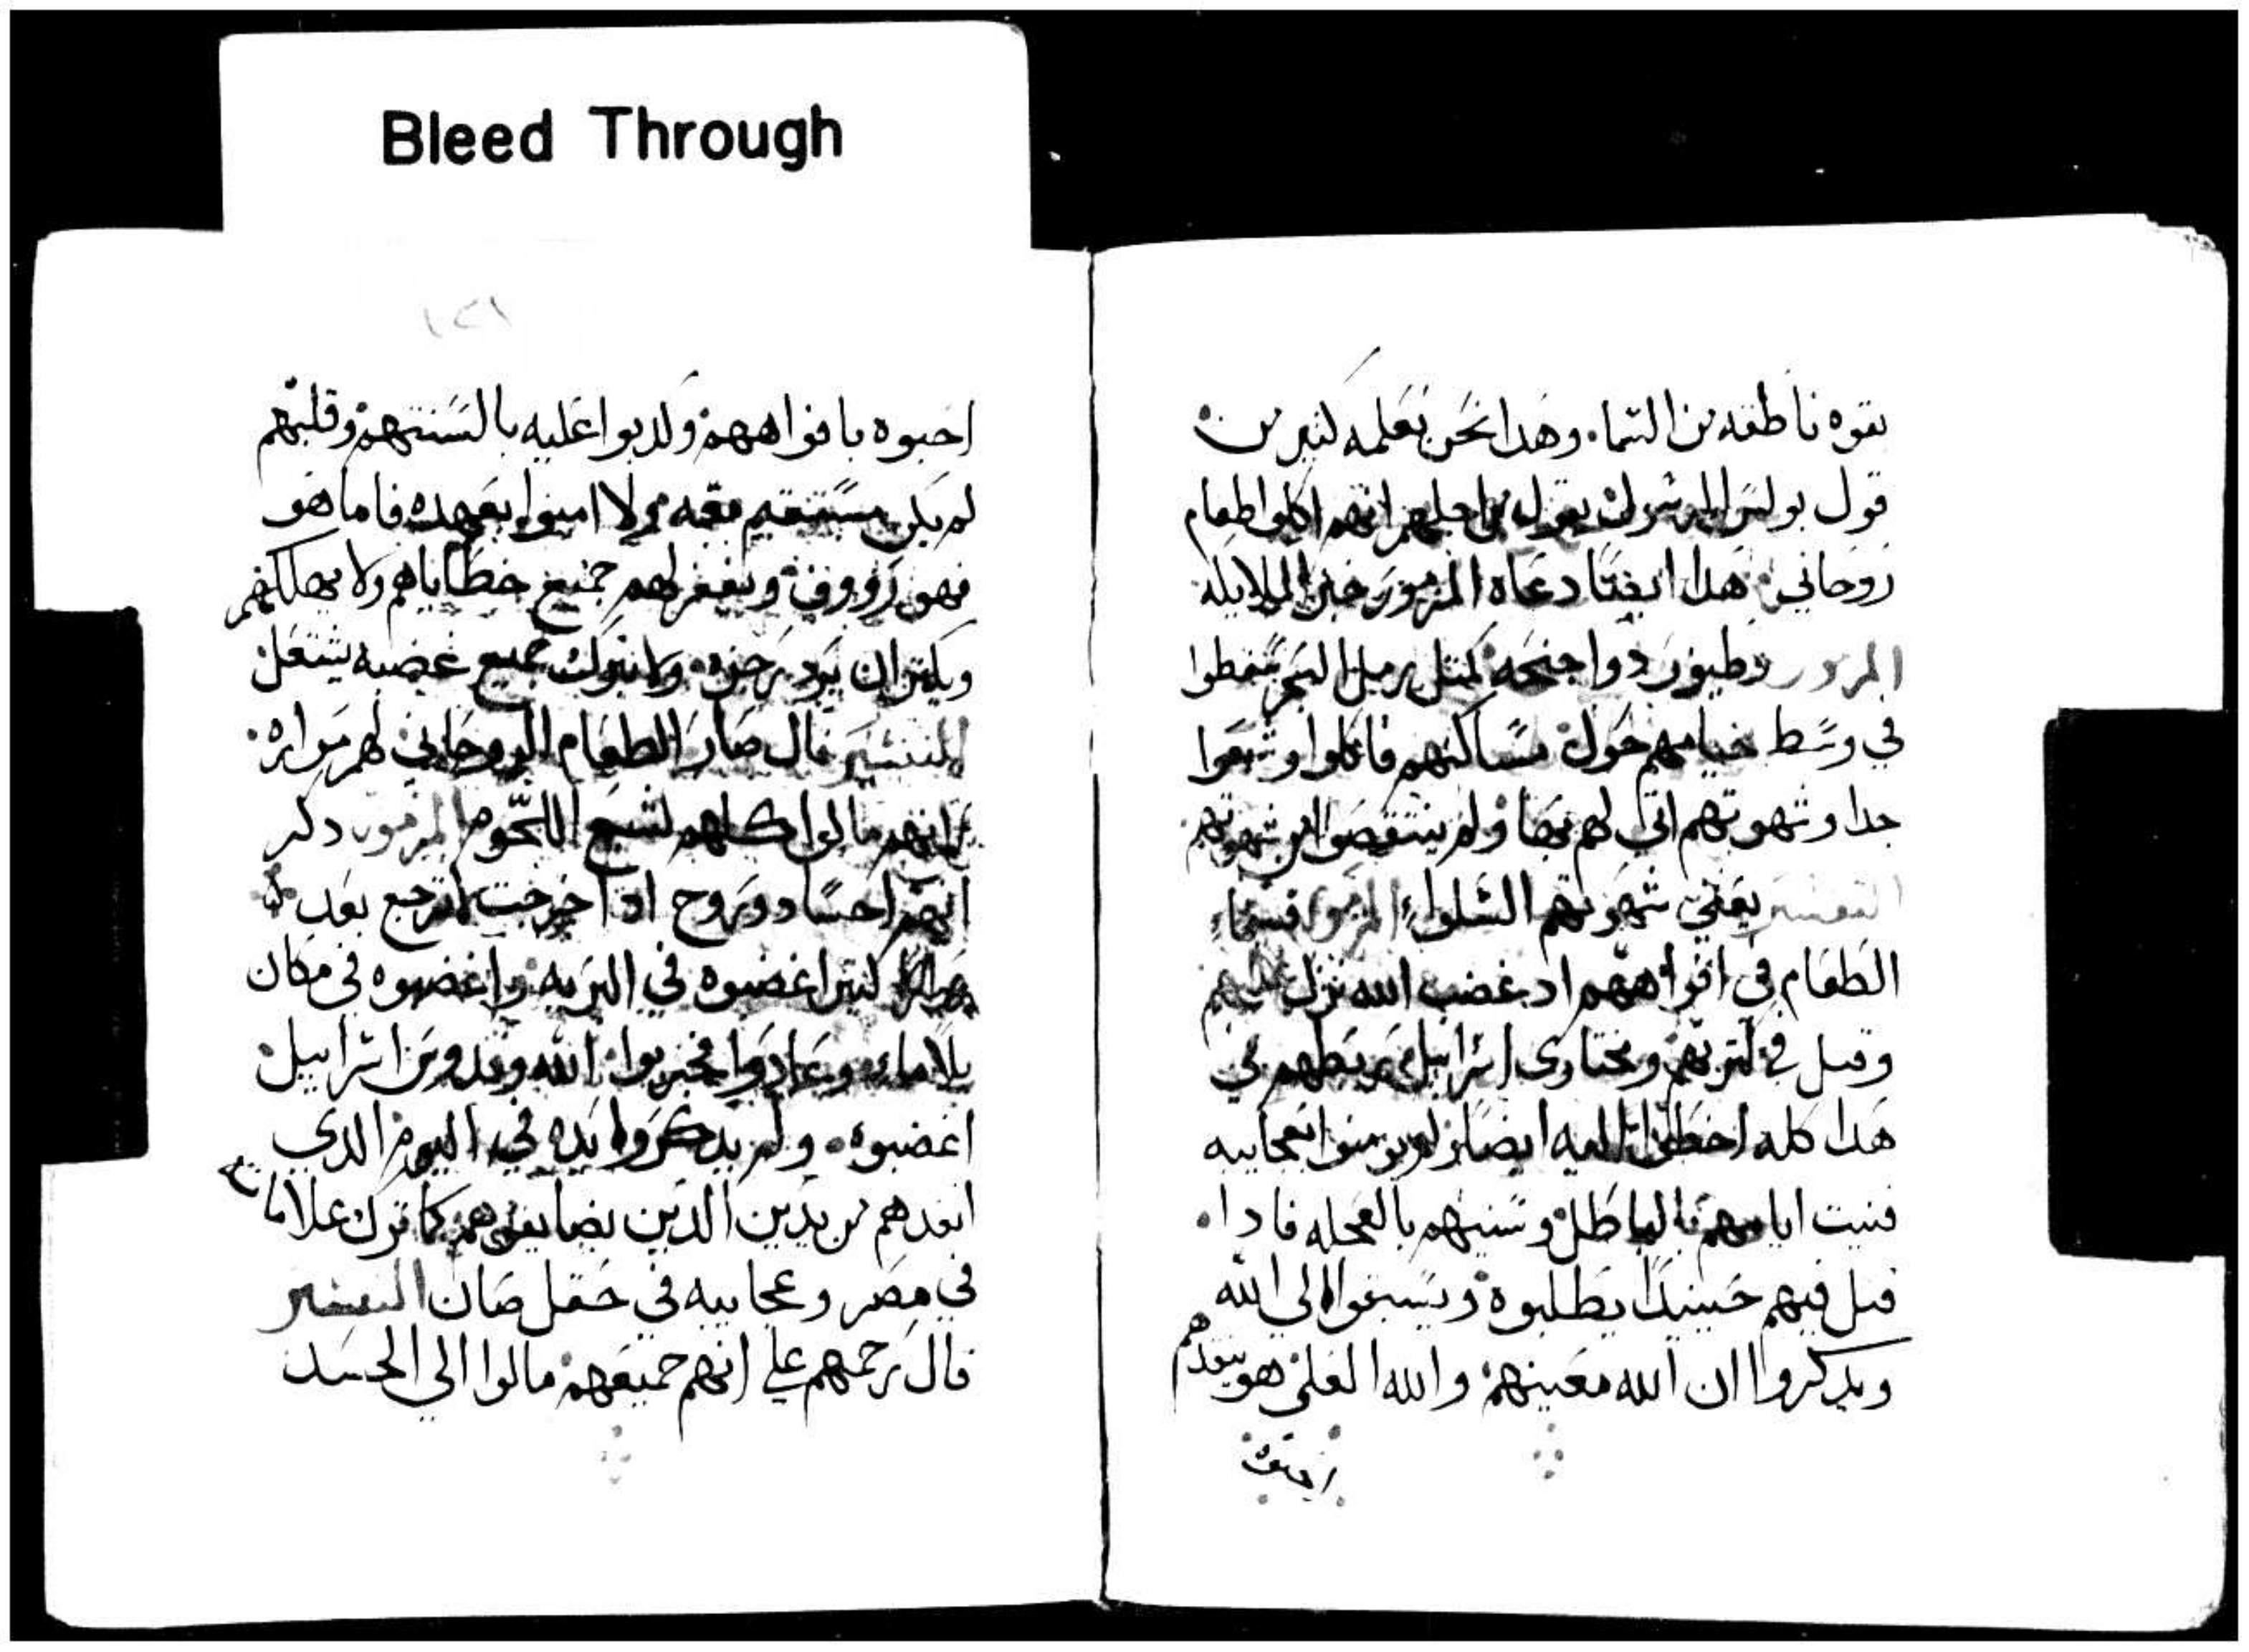 Bleed Through
بقوه ناطقه من السما. وهدا نحن نعلمه كتير من
قول بولس الرسول يقول من اجلهم انهم اكلوا طعام
روحاني هدا ايضا دعاه المزمور خبز الملايكه
المزمور وطيور دوا جنحه كمتل رمل البحر سقطوا
في وسط خيامهم حول مساكنهم فاكلوا وشبعوا
جدا وشهوتهم اتى لهم بها ولم ينتقصوا من شهوتهم
التفسير يعني شهوتهم السلوا المزمور فبينما
الطعام في افواههم اد غضب الله نزل عليهم
وقتل في كترتهم ومختاوى اسراييل ربطهم في
هدا كله اخطوا اليه ايضا ولم يومنوا بعجايبه
فنيت ايامهم بالباطل وسنيهم بالعجله فادا
قتل فيهم حينيدا يطلبوه ويسبقوا الى الله
ويدكروا ان الله معينهم والله العلي هو ينقدهم
احبوه بافواههم وكدبوا عليه بالسنتهم وقلبهم
لم يكن مستقيم معه ولا امنوا بعهده فاما هو
فهو رووف ويغفر لهم جميع خطاياهم ولا يهلكهم
ويكتر ان يرد رجزه ولا يترك جميع غضبه يشتعل
التفسير قال صار الطعام الروحاني لهم مراره
من انهم مالوا كلهم لشبع اللحوم المزمور دكر
انهم اجساد وروح ادا خرجت لم ترجع بعد
كتير اغضبوه في البريه واغضبوه في مكان
بلا ماء وعادوا فجربوا الله وقدوس اسراييل
اغضبوه ولم يدكروا يده في اليوم الدي
انقدهم من يدين الدين يضايقوهم كما ترك علاماته
في مصر وعجايبه في حقل صان التفسير
قال رحمهم على انهم جميعهم مالوا الي الجسد